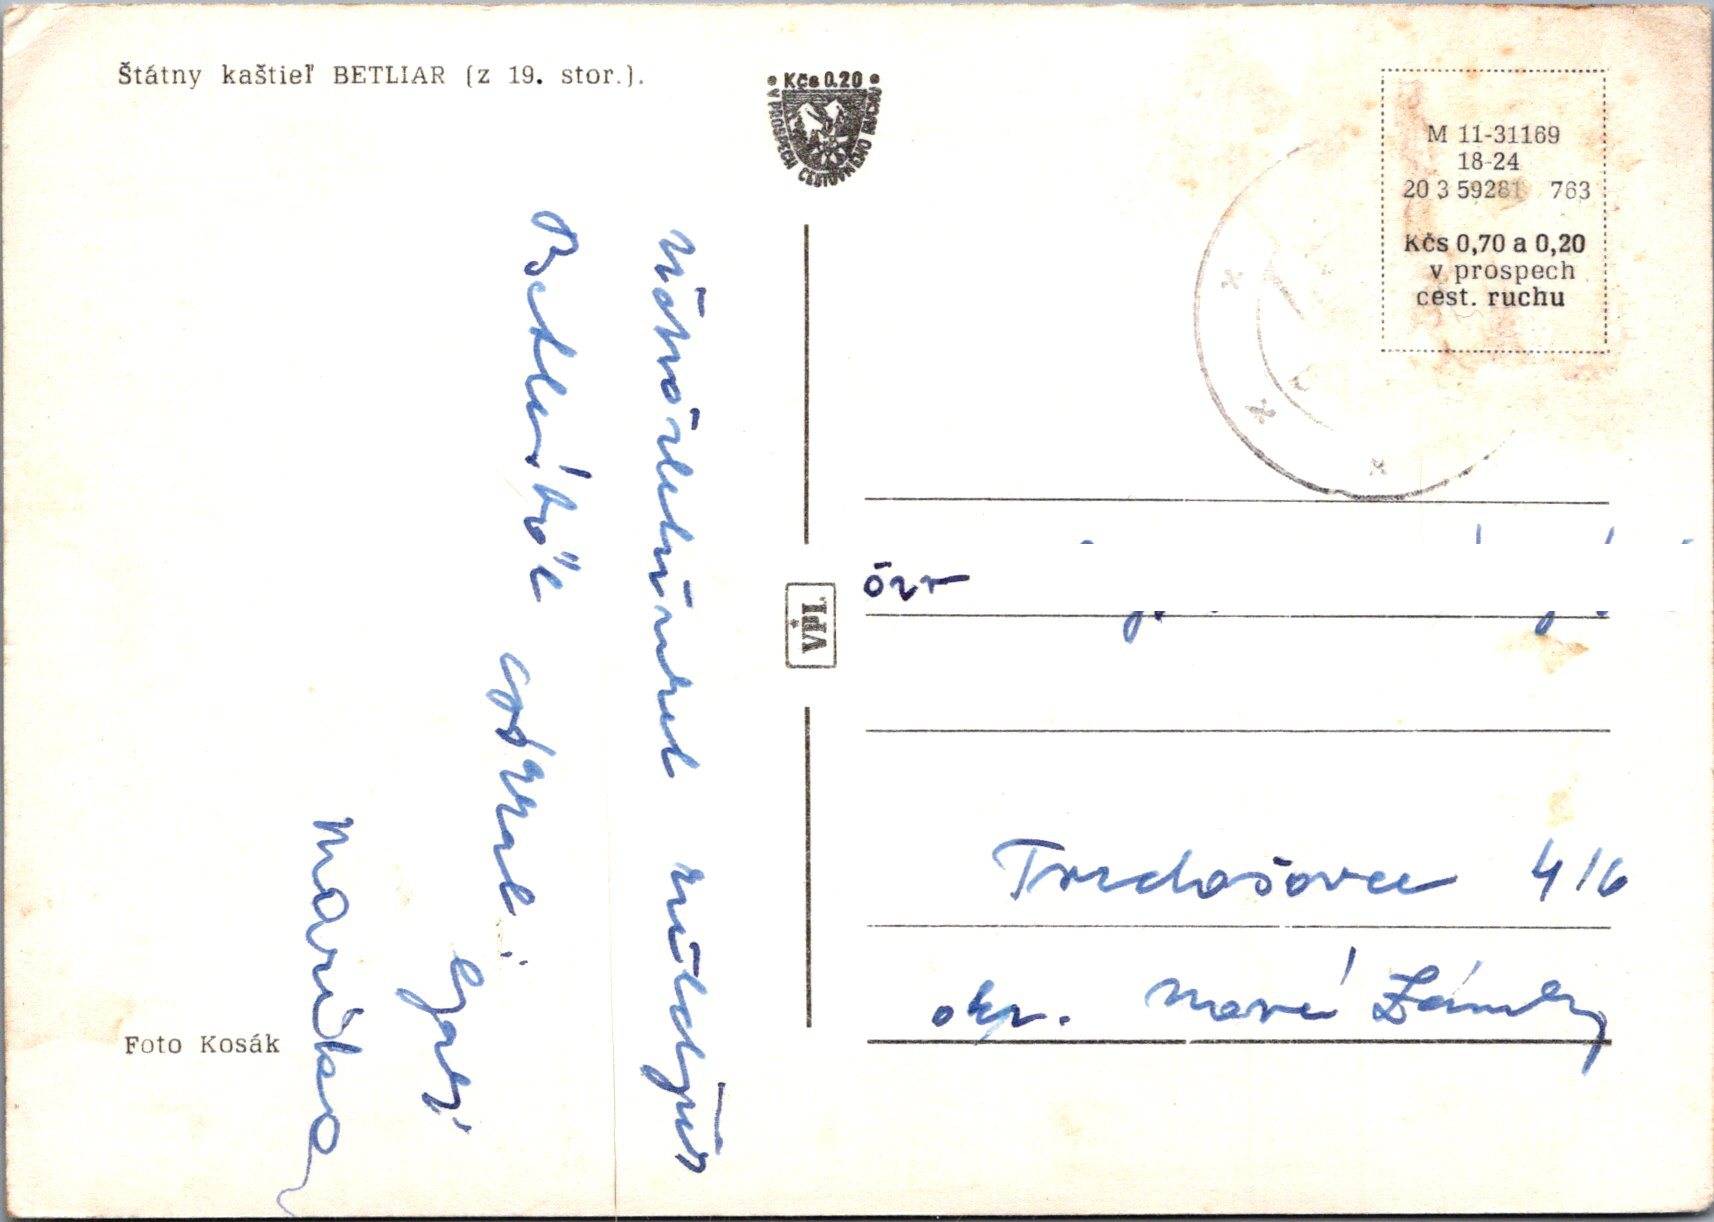 Štátny kaštieľ BETLIAR (z 19. stor.).
• Kčs 0.20 •
V PROSPECH CESTOVNÉHO RUCHU
M 11-31169
18-24
20 3 59281 763
Kčs 0,70 a 0,20
v prospech
cest. ruchu
üdvözletünket küldjük
Betliárból
Gabi
Mariska
VPL
özv
Tvrdošovce 416
okr. Nové Zámky
Foto Kosák